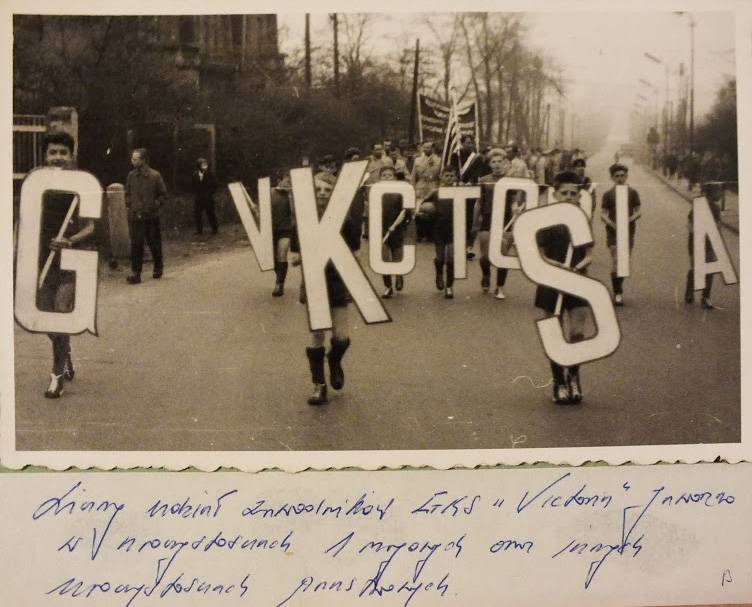 G K S
V C T O I A
Liczny udział zawodników GKS „Victoria” Jaworzno
w uroczystościach 1 majowych oraz innych
uroczystościach państwowych.